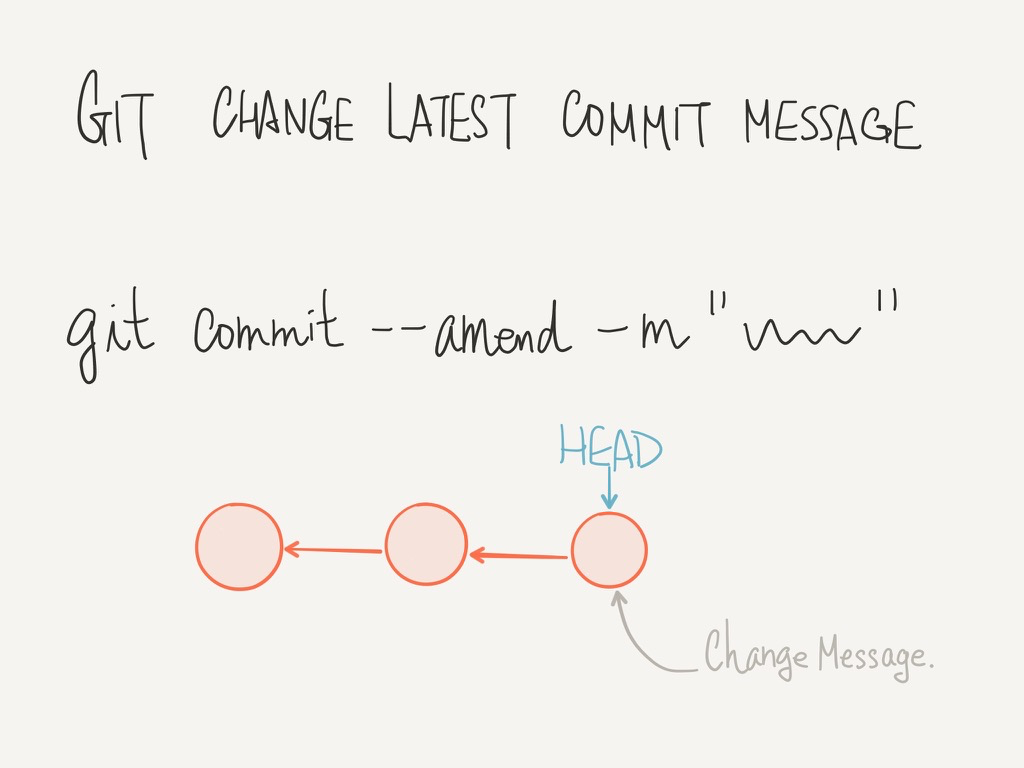 GIT CHANGE LATEST COMMIT MESSAGE
git commit --amend -m " "
HEAD
Change Message.